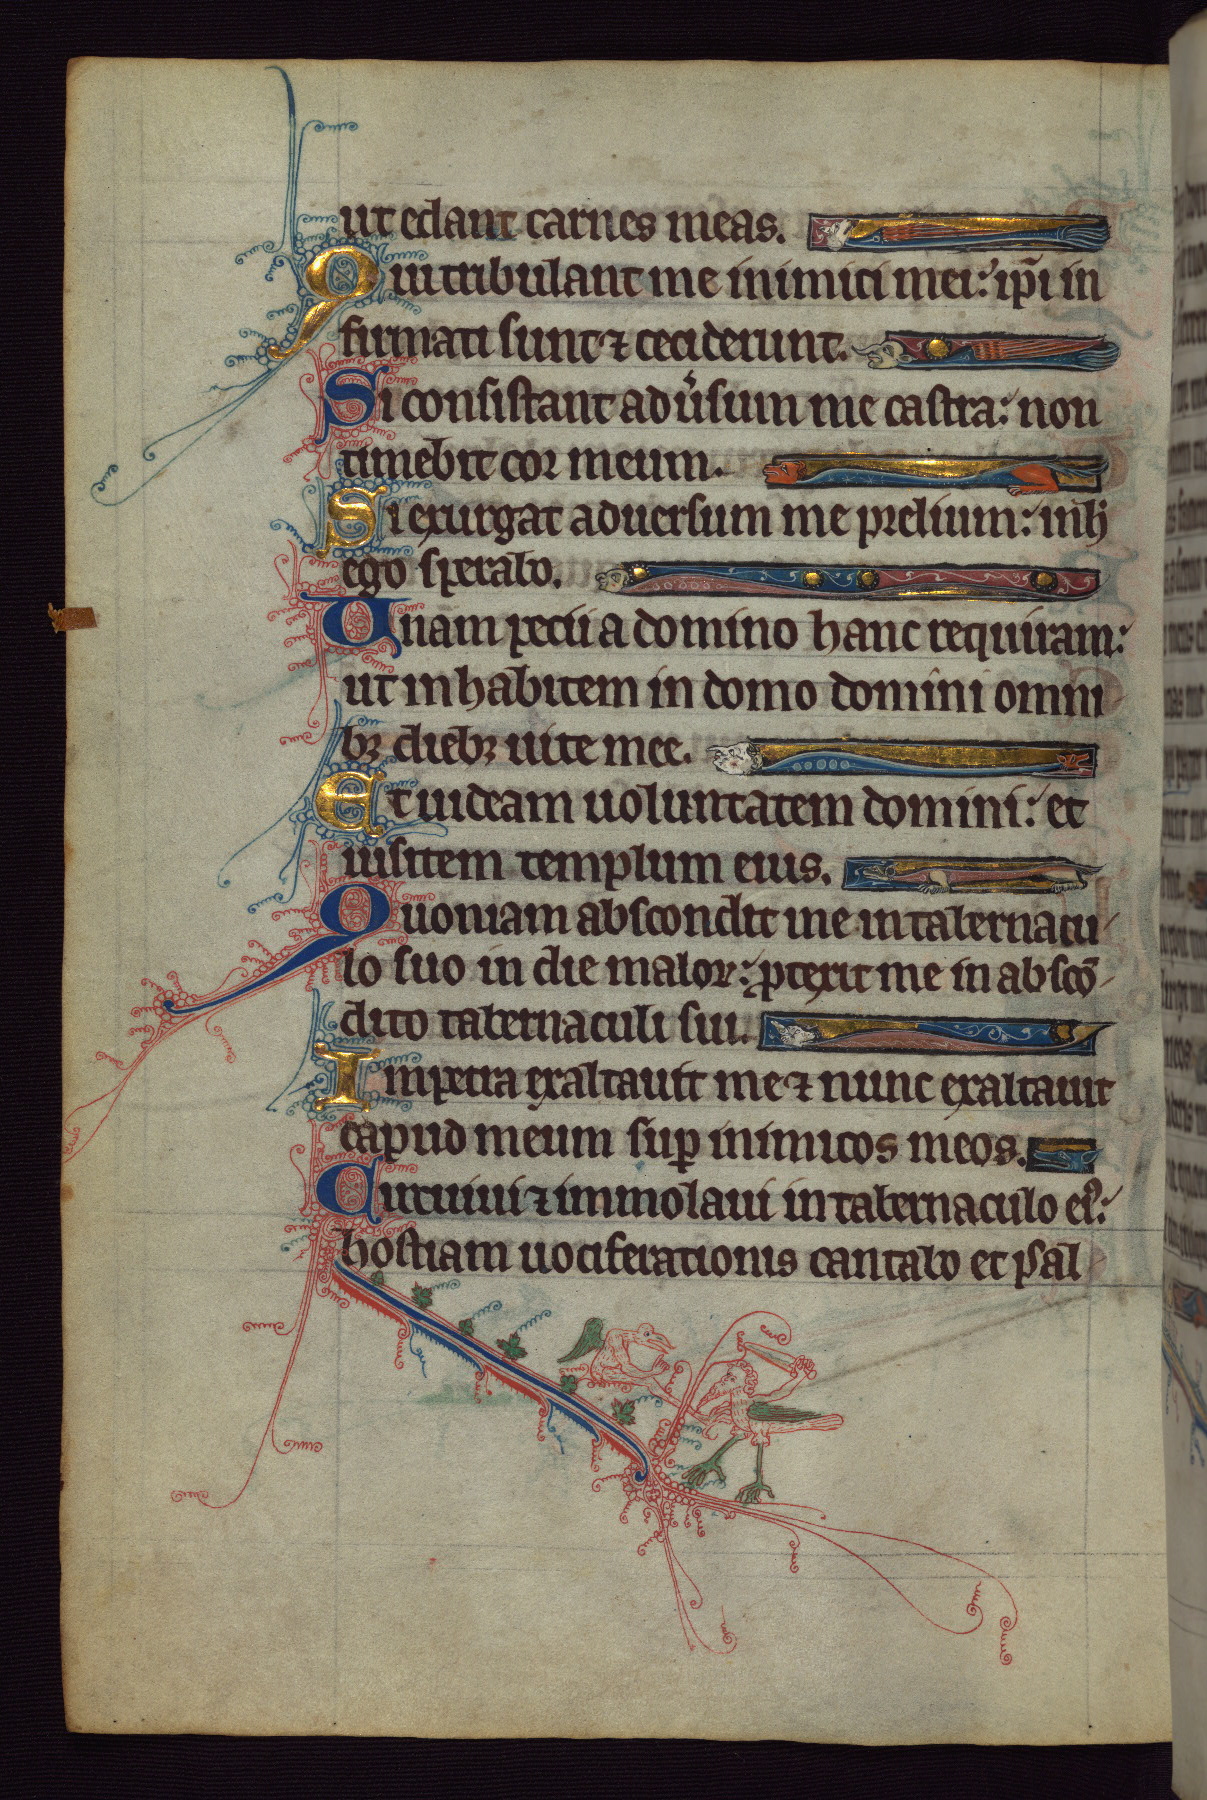 ut edant carnes meas.
Qui tribulant me inimici mei: ip̃i in
firmati sunt ⁊ ceciderunt.
Si consistant adũsum me castra: non
timebit cor meum.
Si exurgat aduersum me prelium: in h
ego sperabo.
Unam pecii a domino hanc requiram:
ut inhabitem in domo domini omni
bꝫ diebꝫ uite mee.
Et uideam uoluntatem domini: et
uisitem templum eius.
Quoniam abscondit me in tabernacu
lo suo in die maloꝝ: ꝓtexit me in abscõ
dito tabernaculi sui.
In petra exaltauit me ⁊ nunc exaltauit
capud meum suꝑ inimicos meos.
Circuiui ⁊ immolaui in tabernaculo eiꝰ:
hostiam uociferationis cantabo et psal